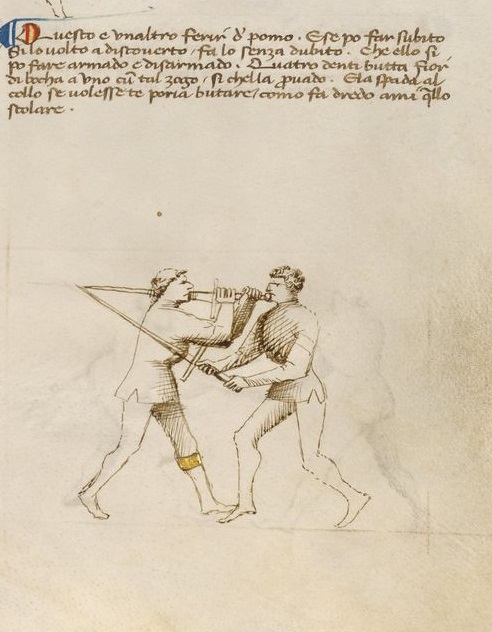 Questo e un altro ferir d' pomo. E se po far subito
gi lo volto a discoverto / fa lo senza dubito. Che ello si
po fare armado e disarmado. Quatro denti butta fior
di bocha a uno cu' tal zogo / si che lla provado. E la spada al
collo se volesse te poria butare / como fa dredo a mi q'llo
scolare.